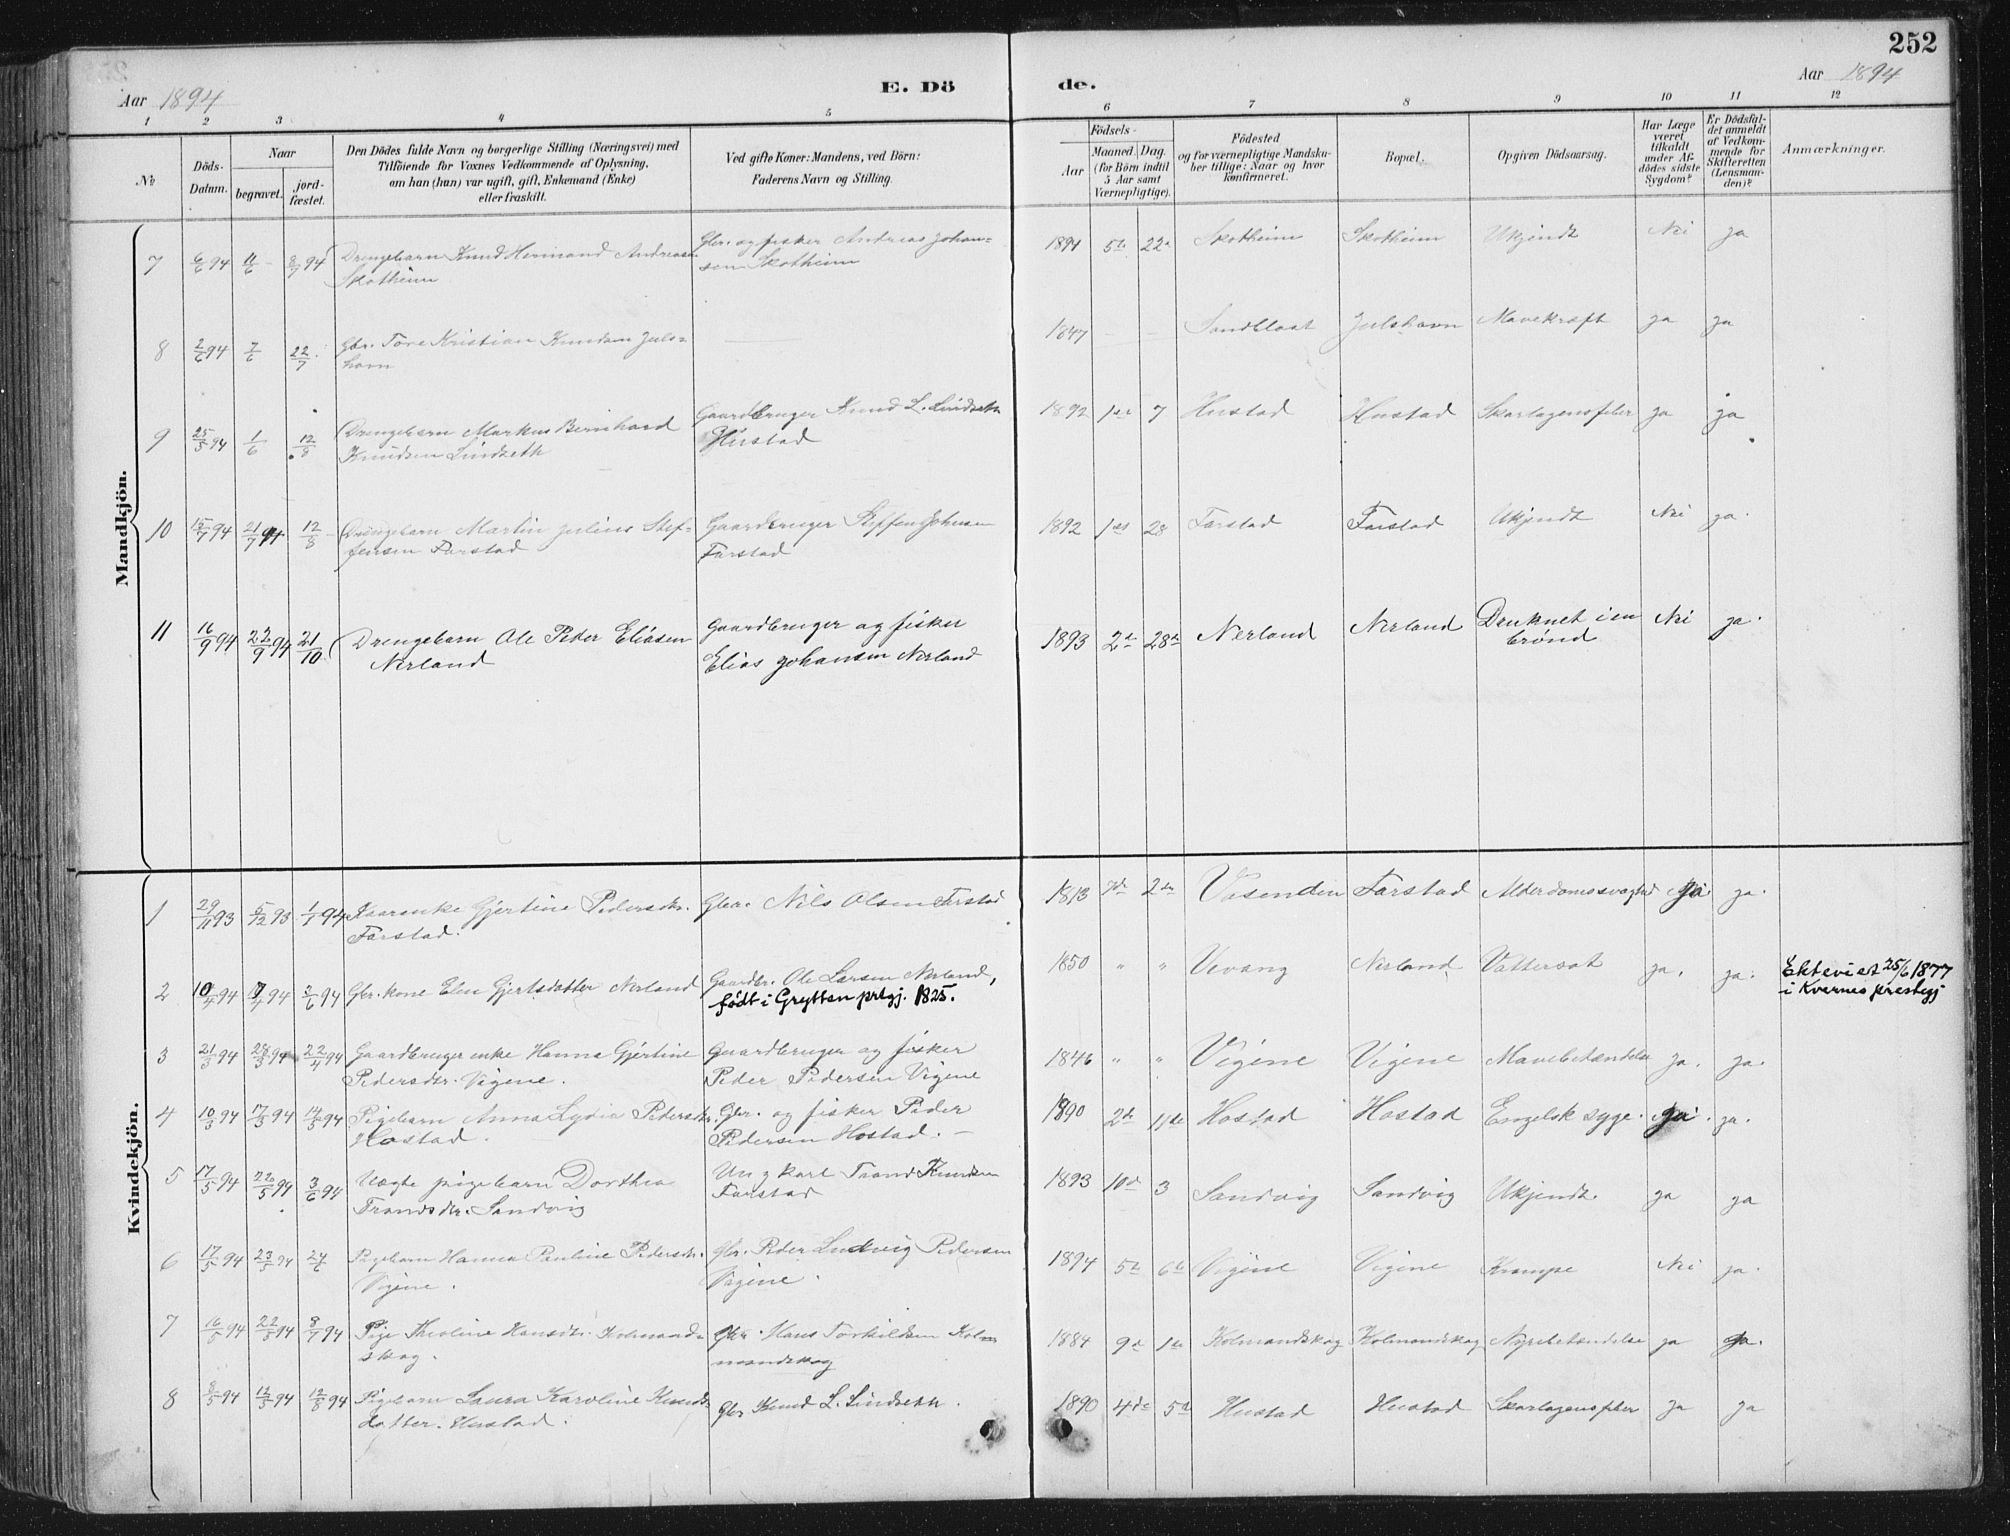 252
Aar 1894
E. Dö
de.
Aar 1894
1 2 3 4 5 6 7 8 9 10 11 12
№
Döds-Datum.
Naar
begravet.
jord-fæstet.
Den Dödes fulde Navn og borgerlige Stilling (Næringsvei) med
Tilföiende for Voxnes Vedkommende af Oplysning,
om han (hun) var ugift, gift, Enkemand (Enke)
eller fraskilt.
Ved gifte Koner: Mandens, ved Börn:
Faderens Navn og Stilling.
Födsels-
Aar
Maaned. Dag.
(for Börn indtil
5 Aar samt
Værnepligtige).
Födested
og for værnepligtige Mandska-
ber tillige: Naar og hvor
konfirmeret.
Bopæl.
Opgiven Dödsaarsag.
Har Læge
været
tilkaldt
under Af-
dödes sidste
Sygdom?
Er Dödsfal-
det anmeldt
af Vedkom-
mende for
Skifteretten
(Lensman-
den)?
Anmærkninger.
Mandkjön.
7 6/6 94 11/6 8/7 94 Drengebarn Knud Hermand Andreas Gbr. og fisker Andreas Johan- 1894 5te 22 Skotheim Skotheim Ukjendt Nei ja
Skotheim sen Skotheim
8 2/6 94 7/6 22/7 Gbr. Tore Kristian Knudsen Juls- 1847 Sandblaat Julshavn Mavekræft ja ja
havn
9 25/5 94 1/6 12/8 Drengebarn Markus Bernhard Gaardbruger Knud L. Lindseth 1892 1ste 7 Hustad Hustad Skarlagensfeber ja ja
Knudsen Lindseth Hustad
10 15/7 94 21/7 94 12/8 Drengebarn Martin Julius Stef- Gaardbruger Steffen Johnsen 1892 1ste 28 Farstad Farstad Ukjendt Nei ja.
fensen Farstad Farstad
11 16/9 94 22/9 94 21/10 Drengebarn Ole Peder Eliasen Gaardbruger og fisker 1893 2de 28de Nerland Nerland Druknet i en Nei ja.
Nerland Elias Johansen Nerland brønd
Kvindekjön.
1 29/11 93 5/12 93 1/1 94 Kaarenke Gjertine Pedersdtr. Gbr. Nils Olsen Farstad 1813 7de 2den Vasenden Farstad Alderdomssvaghed ja ja.
Farstad.
2 10/4 94 94 94 Gbr. kone Elen Gjertsdatter Nerland Gaardbr. Ole Larsen Nerland, 1850 " " Vevang Nerland Vattersot ja. ja. Ektevied 25/6 1877
født i Grytten prtgj. 1825. i Kvernes prestegj
3 21/3 94 28/3 94 22/4 94 Gaardbruger enke Hanna Gjertine Gaardbruger og fisker 1846 " " Vigene Vigene Mavebetændelse ja. ja.
Pedersdtr. Vigene. Peder Pedersen Vigene
4 10/3 94 17/3 94 14/5 94 Pigebarn Anna Lydia Pedersdtr. Gbr. og fisker Peder 1890 2de 11te Hostad Hostad Engelsk syge. ja. ja.
Hostad. Pedersen Hostad.
5 17/5 94 22/5 94 3/6 94 Uægte pigebarn Dorthea Ungkarl Trond Knudsen 1893 10de 3 Sandvig Sandvig Ukjendt. ja ja
Trondsdtr. Sandvig Farstad
6 17/5 94 23/5 94 24/6 Pigebarn Hanna Pauline Pedersdtr. Gbr. Peder Ludvig Pedersen 1894 5te 6te Vigene Vigene Krampe Nei ja.
Vigene. Vigene.
7 16/5 94 22/5 94 8/7 94 Pige Theoline Hansdtr. Kolmands- Gbr. Hans Torkildsen Kol- 1884 9de 1ste Kolmandskog Kolmandskog Nyrebetændelse ja ja.
skog. mandskog
8 8/5 94 12/5 94 12/8 94 Pigebarn Laura Karoline Knuds- Gbr Knud L. Lindseth. 1890 4de 5te Hustad Hustad Skarlagensfeber ja ja
datter. Hustad.